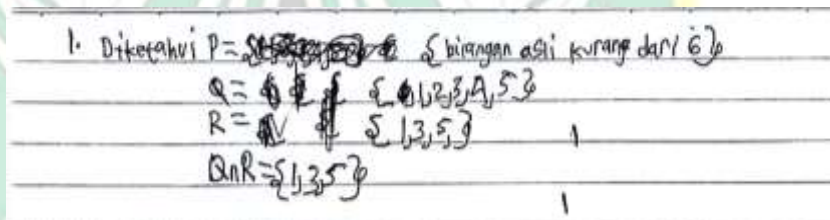 1. Diketahui P = { birangan asli kurang dari 6 }
Q = { 1,2,3,4,5 }
R = { 1,3,5, }
Q∩R = { 1,3,5 }